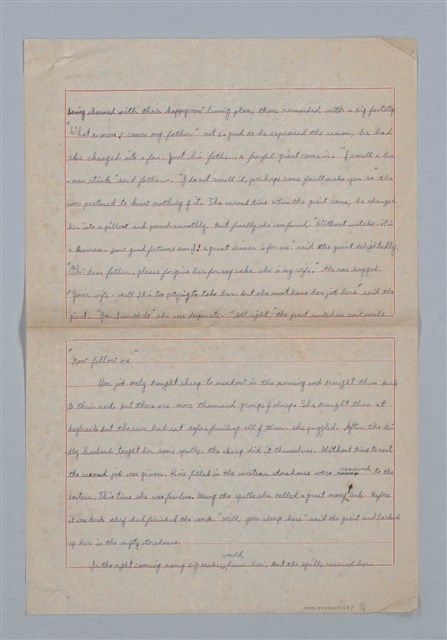 being charmed with their happy new living place, there resounded with a big footstep
"What a mess! comes my father" not so good as he expressed the reason, he had
she changed into a fan. Just his father, a fearful giant came in. "I smell a hu-
man stink" said father. "I do not smell it, perhaps some fault makes you so" the
son pretured to know nothing of it. The second time when the giant came, he changed
her into a pillow and passed smoothly. But finally she was found "Without mistake it is
a human. How good fortune am I! a great dinner is for me" said the giant delightfully.
"Oh! dear father, please forgive her for my sake. she is my wife." The son begged.
"Your wife, well It is too pitying to take her. but she must have her job here" said the
giant. "Yes I must do" she was desperate. "All right" the giant
"Now follow me"
Her job only brought sheep to meadow in the morning and brought them back
to their nest. but there are more thousand groups of sheep. She brought them at
daybreak but the sun had set before finishing all of them. she puzzled. After the ki-
dly husband taught her some spells, the sheep did it themselves. Without time to rest
the second job was given. Rice filled in the western storehouse were removed to the
eastern. This time she was fearless. Using the spells she called a great many ants. Before
it was dark they had finished the work "Well, you sleep here" said the giant and locked
up her in the empty storehouse.
In the night coming many big snakes would harm her, but the spells rescued her